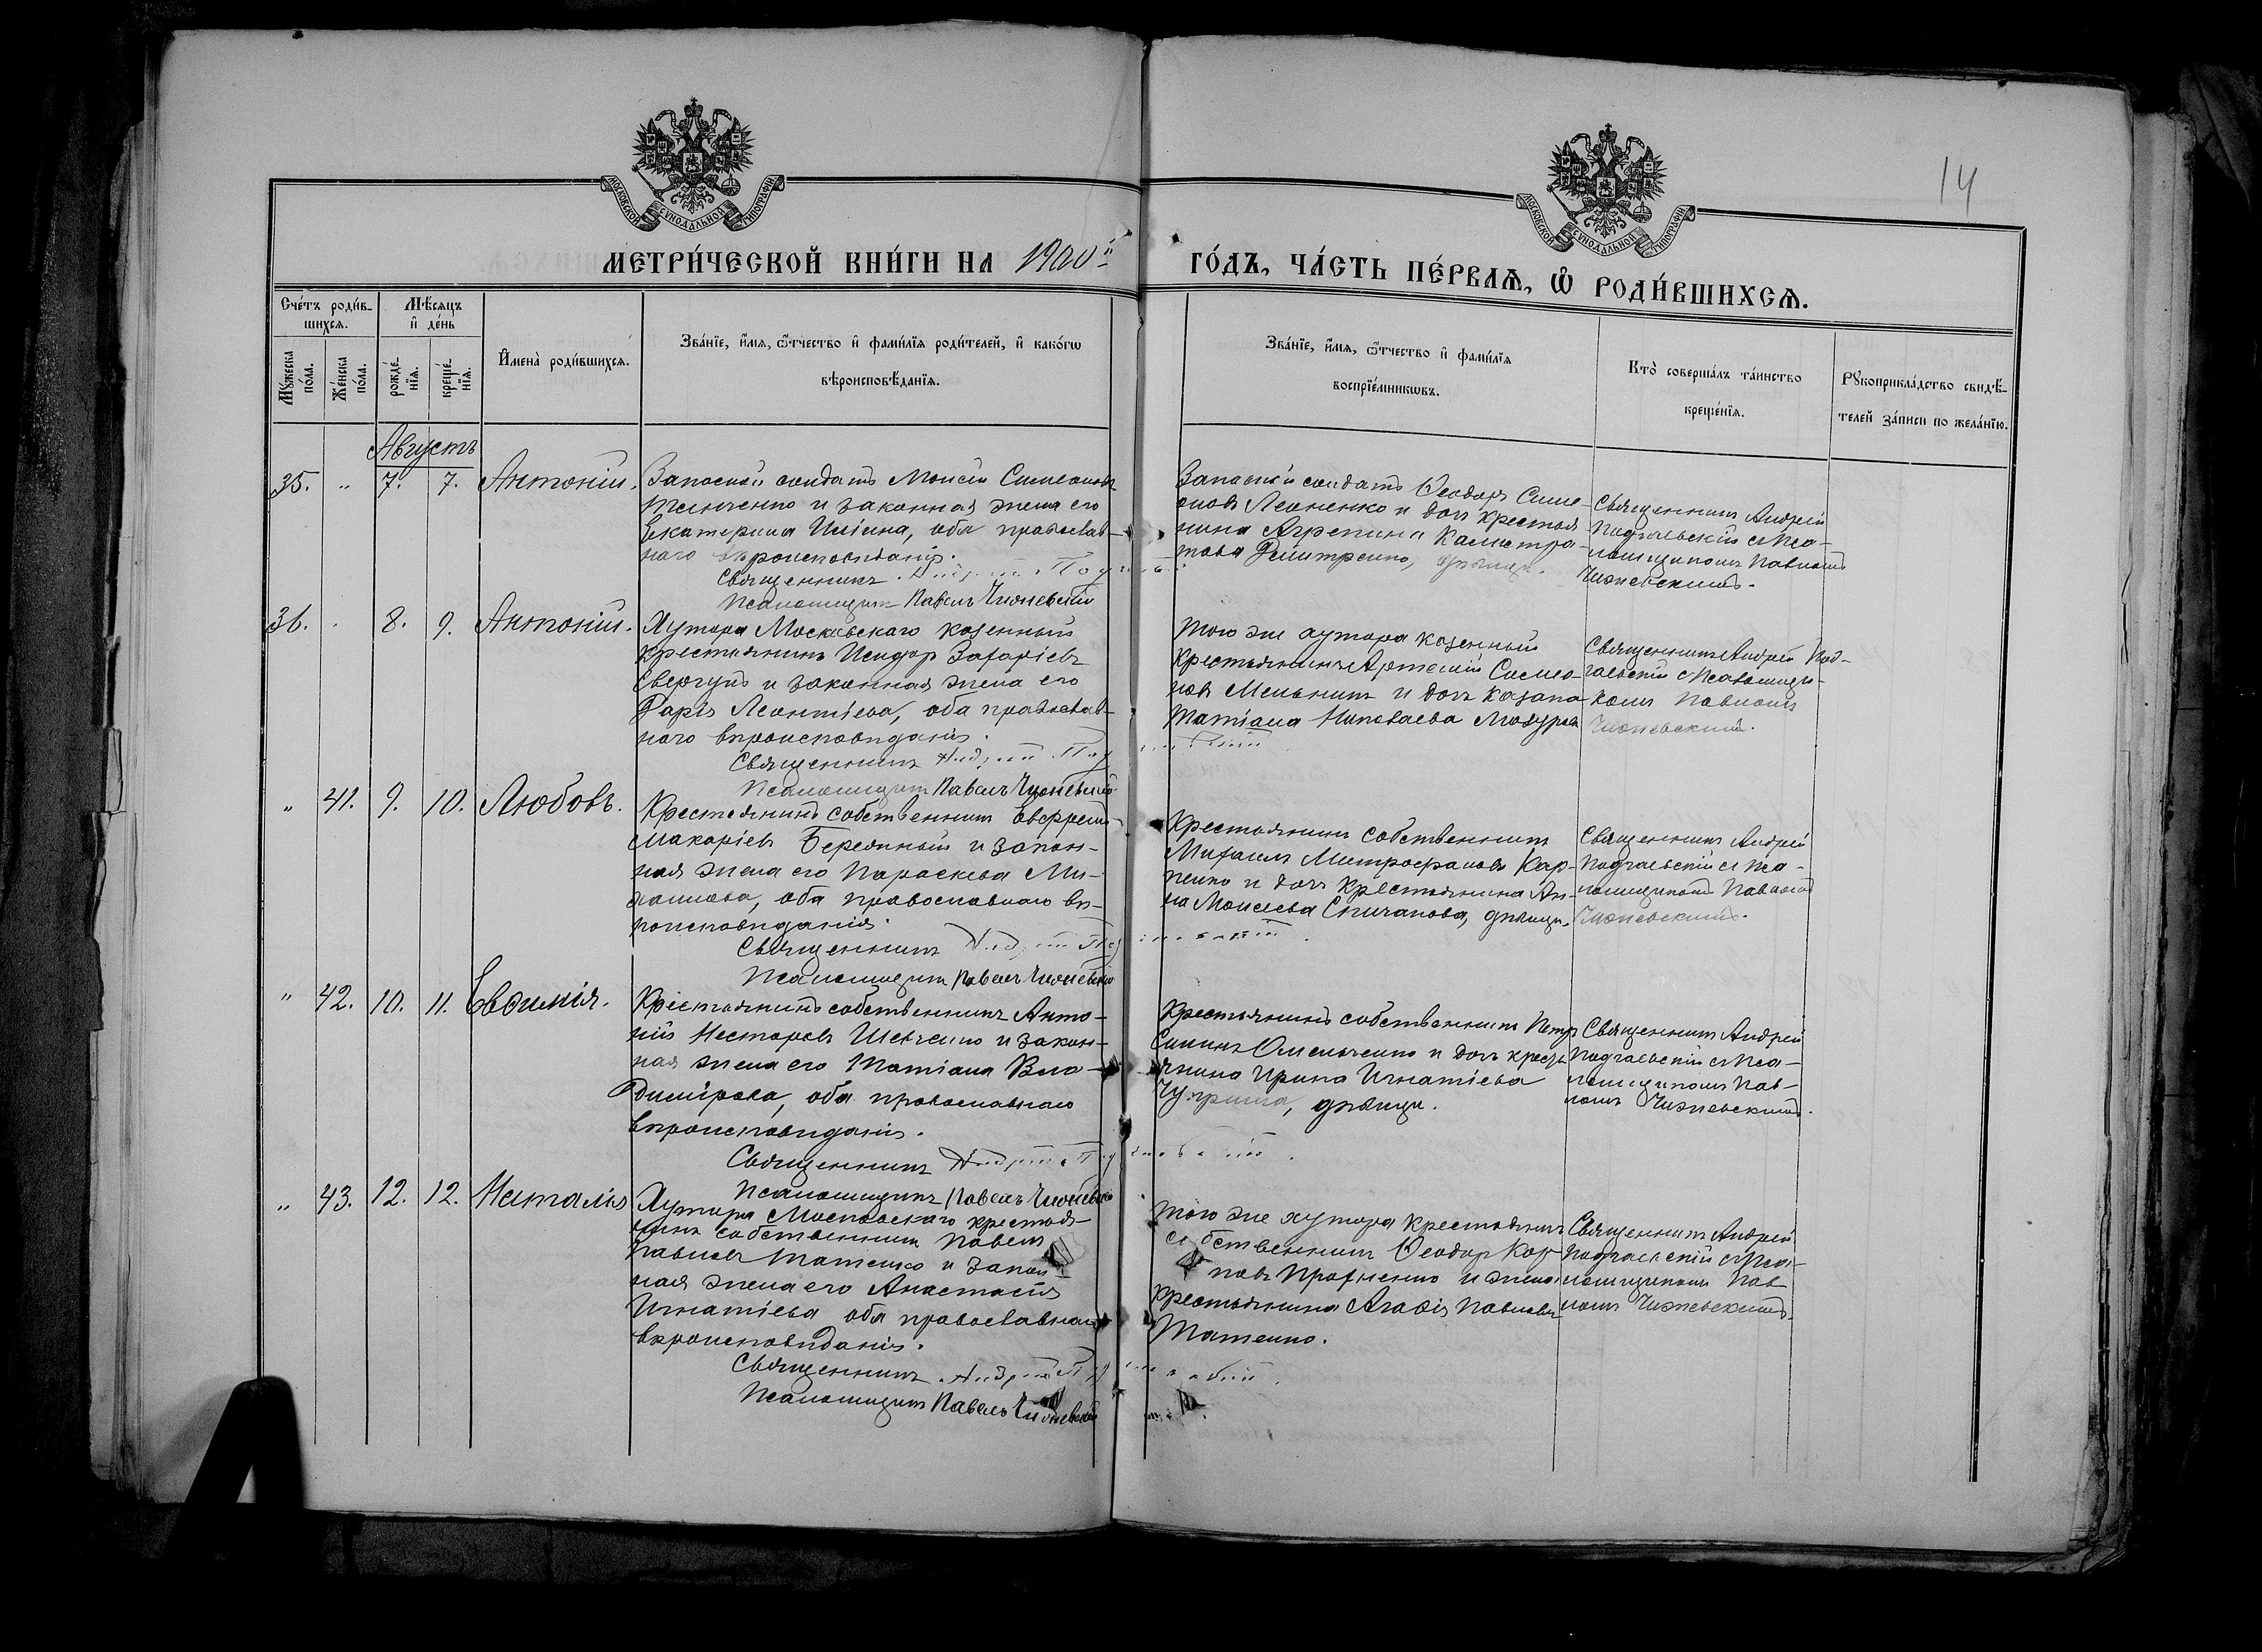 14
МОСКОВСКОЙ СѴНОДАЛЬНОЙ ТИПОГРАФІИ
МОСКОВСКОЙ СѴНОДАЛЬНОЙ ТИПОГРАФІИ
МЕТРИ́ЧЕСКОЙ КНИ́ГИ НА 1900й
ГО́ДЪ, ЧА́СТЬ ПЕ́РВАѦ, Ѡ РОДИ́ВШИХСѦ.
Сче́тъ роди́в-
шихсѧ.
Мѣ́сѧцъ
и де́нь
Мꙋ́жеска
по́ла.
Же́нска
по́ла.
рожде́-
нїѧ.
креще́-
нїѧ.
Имена̀ роди́вшихсѧ.
Зва́нїе, и́мѧ, ѿтчество и фами́лїѧ роди́телей, и како́гѡ
вѣроисповѣ́данїѧ.
Зва́нїе, и́мѧ, ѿтчество и фами́лїѧ
воспрїе́мникѡвъ.
Кто̀ соверша́лъ та́инство
креще́нїѧ.
Рꙋкоприкла́дство свидѣ́-
телей за́писи по жела́нїю.
Августъ
35. „ 7. 7. Антоній.
Запасной солдатъ Моисей Симеоновъ
и законная жена его
Екатерина Иліина, оба православ-
наго вѣроисповѣданія.
Священникъ Андрей
Псаломщикъ Павелъ Чижевскій
Запасной солдатъ Ѳеодоръ Симе-
оновъ Леоненко и дочь крестья-
нина Агрепина Калистра-
това Дмитренко, дѣвица.
Священникъ Андрей
Подгаевскій с Пса-
ломщикомъ Павломъ
Чижевскимъ.
36. 8. 9. Антоній.
Хутора Московскаго казенный
крестьянинъ Исидор Захаріевъ
Свергунъ и законная жена его
Дарія Леонтіева, оба православ-
наго вѣроисповѣданія.
Священникъ Андрей
Псаломщикъ Павелъ Чижевскій
Того же хутора казенный
крестьянинъ Артемій Симео-
новъ Мельникъ и дочь казака
Татіана Николаева Мазурова
Священникъ Андрей Под-
гаевскій с Псаломщи-
комъ Павломъ
Чижевскимъ.
„ 41. 9. 10. Любовь.
Крестьянинъ собственникъ Евфремъ
Макаріевъ и закон-
ная жена его Параскева Ми-
хаилова, оба православнаго вѣ-
роисповѣданія.
Священникъ Андрей
Псаломщикъ Павелъ Чижевскій
Крестьянинъ собственникъ
Михаилъ Митрофановъ Кар-
пенко и дочь крестьянина Ан-
на Моисеева дѣвица.
Священникъ Андрей
Подгаевскій с Пса-
ломщикомъ Павломъ
Чижевскимъ.
„ 42. 10. 11. Евѳимія.
Крестьянинъ собственникъ Анто-
ній Несторовъ Шевченко и закон-
ная жена его Татіана Вла-
димірова, оба православнаго
вѣроисповѣданія.
Священникъ Андрей
Псаломщикъ Павелъ Чижевскій
Крестьянинъ собственникъ Петръ
Омельченко и дочь кресть-
янина Ирина Игнатіева
Чуприна, дѣвица.
Священникъ Андрей
Подгаевскій с Пса-
ломщикомъ Пав-
ломъ Чижевскимъ.
„ 43. 12. 12. Наталія
Хутора Московскаго крестья-
нинъ собственникъ Павелъ
Павловъ Татенко и закон-
ная жена его Анастасія
Игнатіева оба православнаго
вѣроисповѣданія.
Священникъ Андрей
Псаломщикъ Павелъ Чижевскій
Того же хутора крестьянинъ
собственникъ Ѳеодор Кар-
повъ и жена
крестьянина Агафія Павлова
Татенко.
Священникъ Андрей
Подгаевскій с Пса-
ломщикомъ Пав-
ломъ Чижевскимъ.